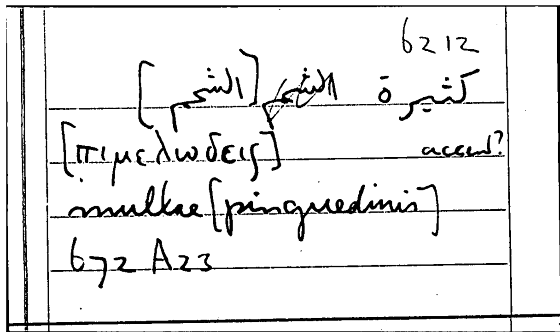 6212
كثيرة الشحم [الشحم]
[πιμελωδεις] accent?
multae [pinguedinis]
672 A23